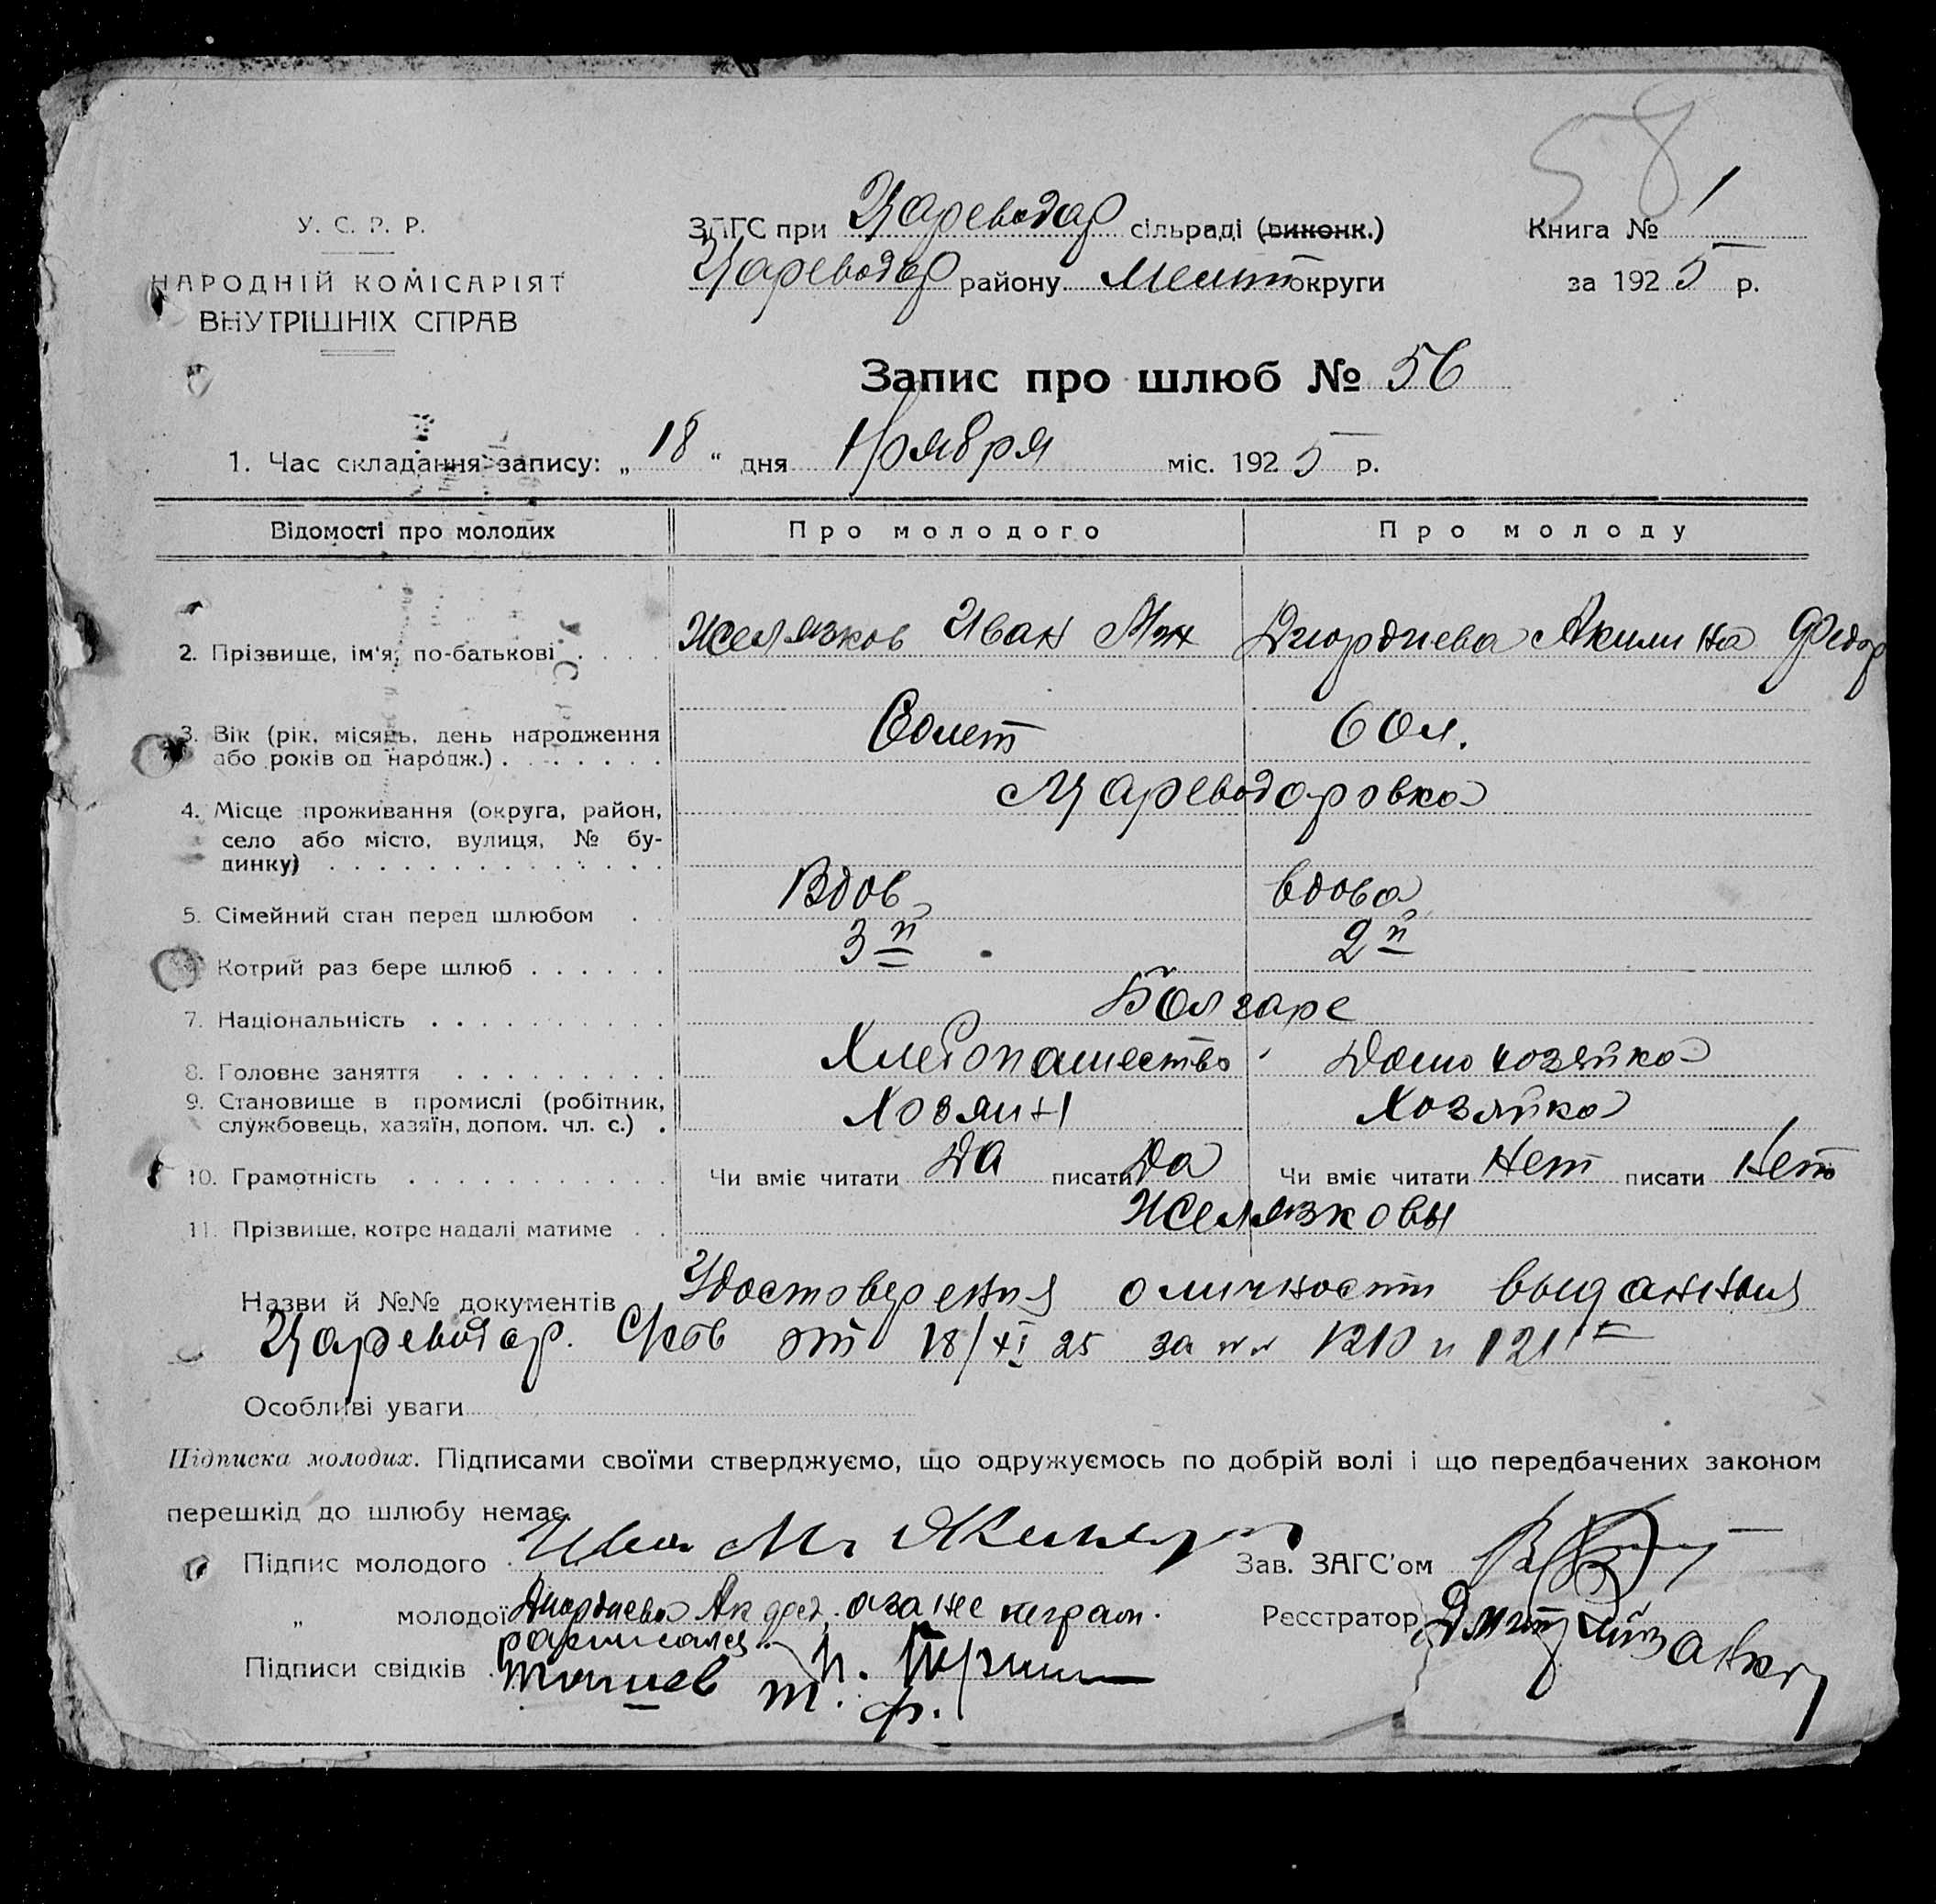 58
У. С. Р. Р.
НАРОДНІЙ КОМІСАРІЯТ
ВНУТРІШНІХ СПРАВ
ЗАГС при Цареводар сільраді (виконк.)
Цареводар району Мелит округи
Книга № 1
за 1925 р.
Запис про шлюб № 56
1. Час складання запису: „ 18 “ дня Ноября міс. 1925 р.
Відомості про молодих Про молодого Про молоду
2. Прізвище, ім'я, по-батькові Желязков Иван Дюрдиева Акилина Федор
3. Вік (рік, місяць, день народження 60 лет 60 л.
або років од народж.)
Цареводаровка
4. Місце проживання (округа, район,
село або місто, вулиця, № бу-
динку)
5. Сімейний стан перед шлюбом Вдов вдова
Котрий раз бере шлюб 3й 2й
7. Національність Болгаре
8. Головне заняття Хлебопашество Домохозяйка
9. Становище в промислі (робітник, Хозяин Хозяйка
службовець, хазяїн, допом. чл. с.)
10. Грамотність Чи вміє читати Да писати Да Чи вміє читати Нет писати Нет
11. Прізвище, котре надалі матиме Желязковы
Назви й №№ документів Удостоверения о личности выданныя
Цареводар. от 18/XI 25 за №№ 1210 и 1211
Особливі уваги
Підписка молодих. Підписами своїми стверджуємо, що одружуємось по добрій волі і що передбачених законом
перешкід до шлюбу немає.
Підпис молодого Зав. ЗАГС'ом
„ молодої Дюрдиева Ак Фед. а за нее неграм. Реєстратор
расписался
Підписи свідків